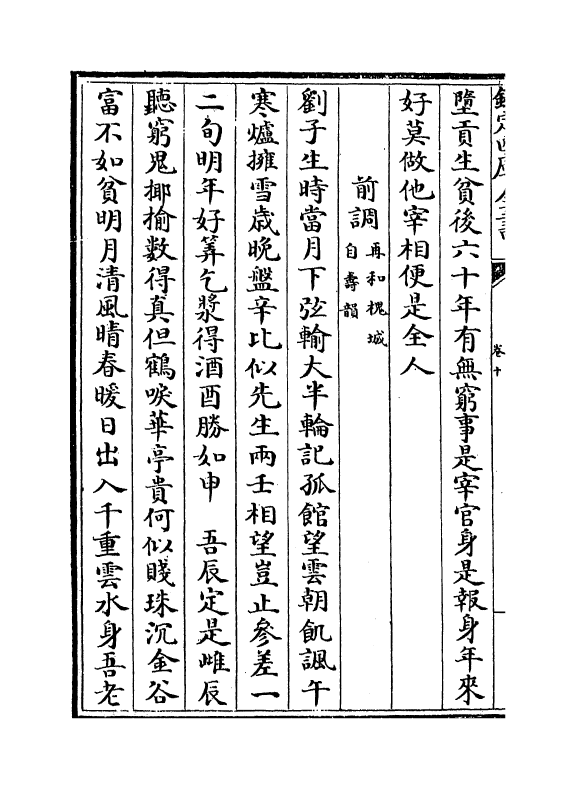 欽定四庫全書
卷十
墮貢生貧後六十年有無窮事是宰官身是報身年來
好莫做他宰相便是全人
前調再和槐城
自壽韻
劉子生時當月下弦輸大半輪記孤館望雲朝飢諷午
寒爐擁雪歲晚盤辛比似先生兩壬相望豈止參差一
二旬明年好筭乞漿得酒酉勝如申 吾辰定是雌辰
聽窮鬼揶揄數得真但鶴唳華亭貴何似賤珠沉金谷
富不如貧明月清風晴春暖日出入千重雲水身吾老